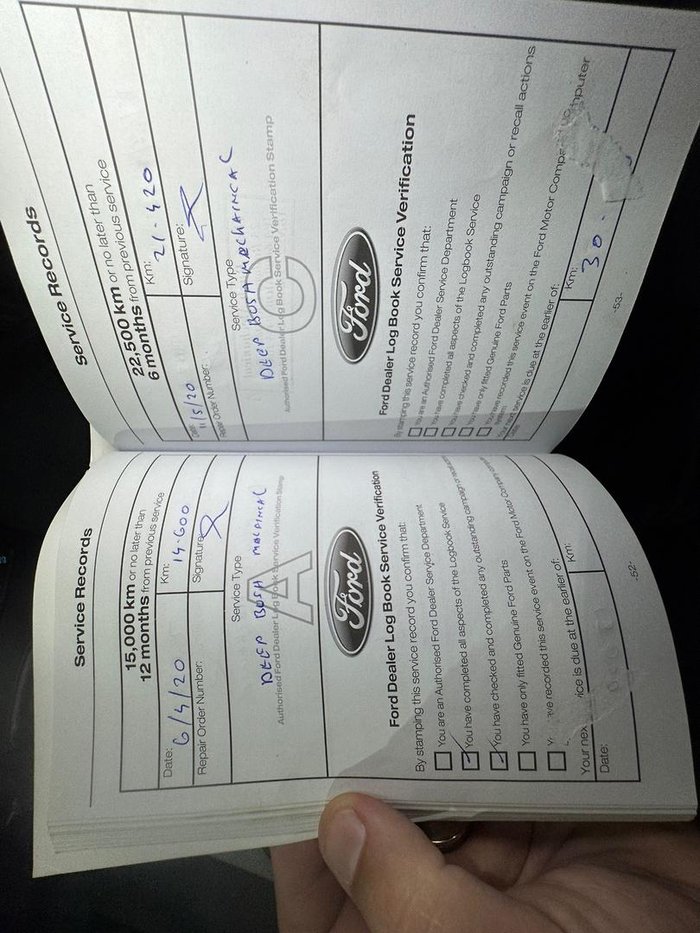 Service Records
15,000 km or no later than
12 months from previous service
Date: 6/4/20 Km: 14.600
Repair Order Number: Signature:
Service Type
DEEP BOSH
A
Authorised Ford Dealer Log Book Service Verification Stamp
Ford
Ford Dealer Log Book Service Verification
By stamping this service record you confirm that:
You are an Authorised Ford Dealer Service Department
You have completed all aspects of the Logbook Service
You have checked and completed any outstanding campaign or recall
You have only fitted Genuine Ford Parts
ve recorded this service event on the Ford Motor Company
Your nex ice is due at the earlier of:
Date: Km:
-52-
Service Records
Service Records
22,500 km or no later than
6 months from previous service
Date: 11/5/20 Km: 21-420
Repair Order Number: Signature:
Service Type
DEEP BOSH MECHAINCAL
C
Authorised Ford Dealer Log Book Service Verification Stamp
Ford
Ford Dealer Log Book Service Verification
By stamping this service record you confirm that:
You are an Authorised Ford Dealer Service Department
You have completed all aspects of the Logbook Service
You have checked and completed any outstanding campaign or recall actions
You have only fitted Genuine Ford Parts
You have recorded this service event on the Ford Motor Compa mputer
System
Your next service is due at the earlier of:
Date: Km: 30.
-53-